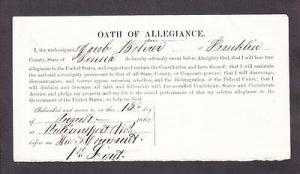 OATH OF ALLEGIANCE.
I, the undersigned, Jacob of Franklin
County, State of Penna do hereby solemnly swear before Almighty God, that I will bear true
allegiance to the United States, and support the Constitution and laws thereof; that I will maintain
the national sovereignty paramount to that of all State, County, or Corporate powers; that I will discourage,
discountenance, and forever oppose secession, rebellion, and the disintegration of the Federal Union; that I
disclaim and denounce all faith and fellowship with the so-called Confederate States and Confederate
Armies, and pledge my property and my life to the sacred performance of this my solemn allegiance to the
Government of the United States; so help me God.
Subscribed and sworn to, on this 15 day
of August 1862,
at
before me
1st Lieut.